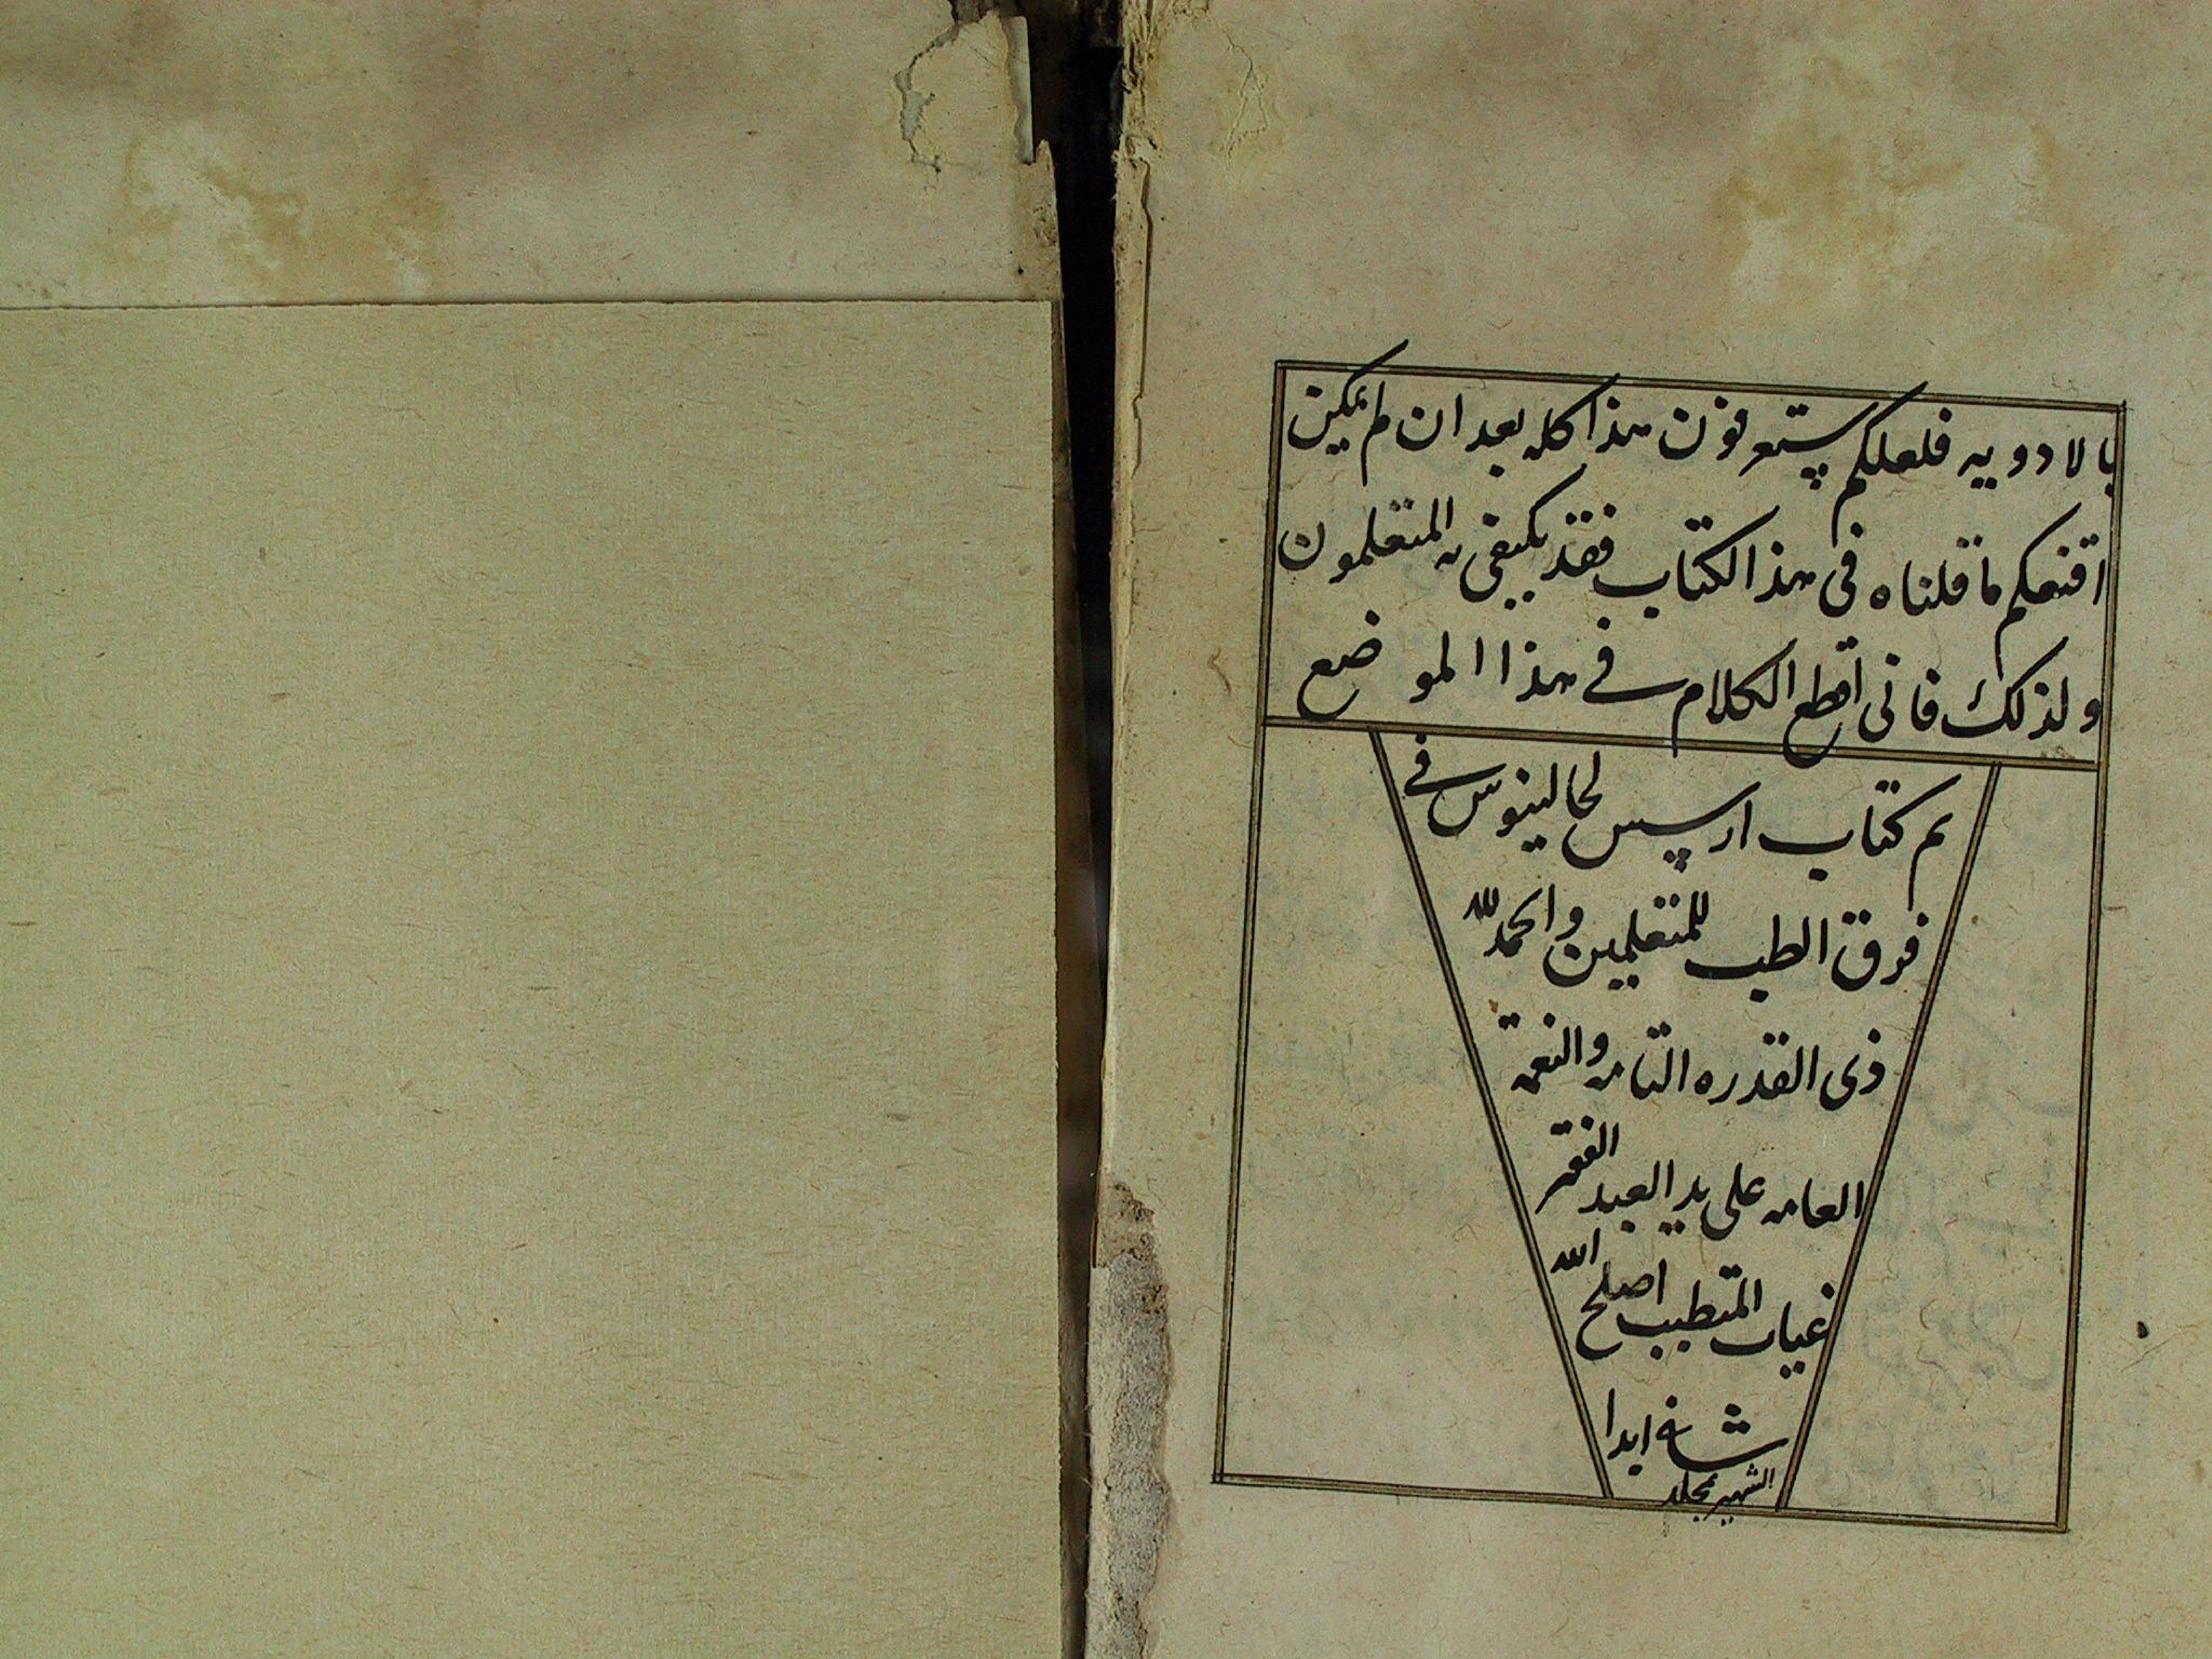 بالادويه فلعلكم ستعرفون هذا كله بعد ان لم يكن
اقنعكم ما قلناه فى هذا الكتاب فقد يكتفى به المتعلمون
ولذلك فانى اقطع الكلام فے هذا الموضع
تم كتاب ارسيس لجالينوس فے
فرق الطب للمتعلمين والحمد لله
ذى القدره التامه والنعمة
العامه على يد العبد الفقير
غياث المتطبب اصلح الله
شانه ابدا
الشهير بمجلد